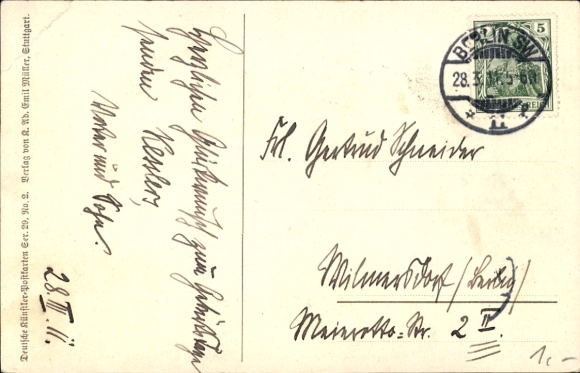 Deutsche Künstler-Postkarten Ser. 29, No. 2. Verlag von K. Ad. Emil Müller, Stuttgart.
Herzlichen Glückwunsch zum Geburtstage
senden Kesslers,
Mutter und Sohn.
28. III. 11.
5
BERLIN SW
28.3.11. 5-6N
* 11
REICH
Frl. Gertrud Schneider
Wilmersdorf (Berlin)
Meierotto-Str. 2 II
1,-